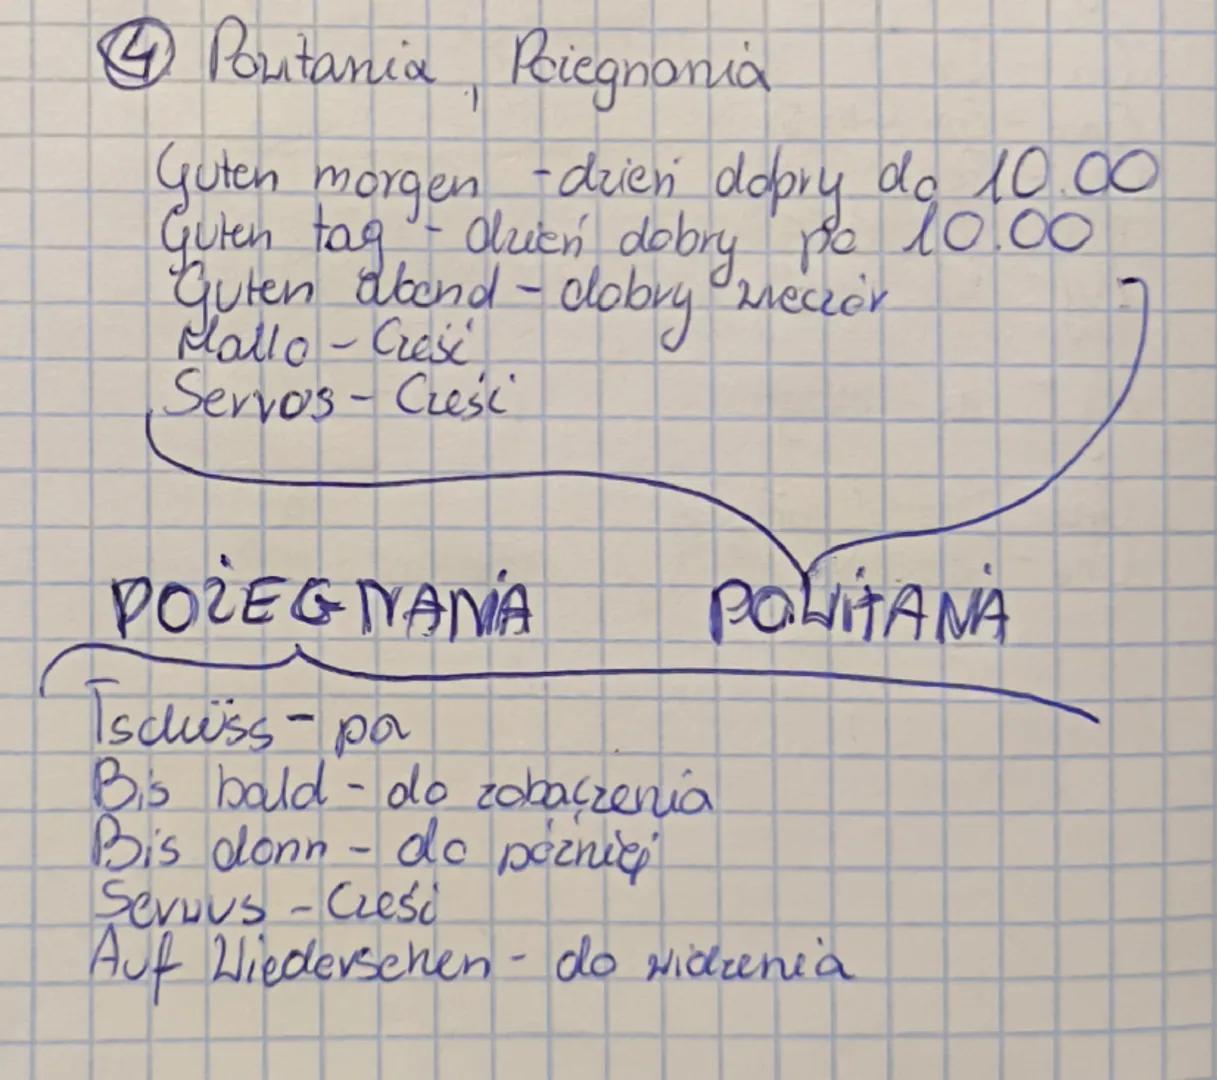 ④ Powitania, Pożegnania
Guten morgen - dzień dobry do 10.00
Guten tag - dzień dobry po 10.00
Guten abend - dobry wieczór
Hallo - Cześć
Servos - Cześć
POŻEGNANIA POWITANIA
Tschüss - pa
Bis bald - do zobaczenia
Bis dann - do później
Servus - Cześć
Auf Wiedersehen - do widzenia